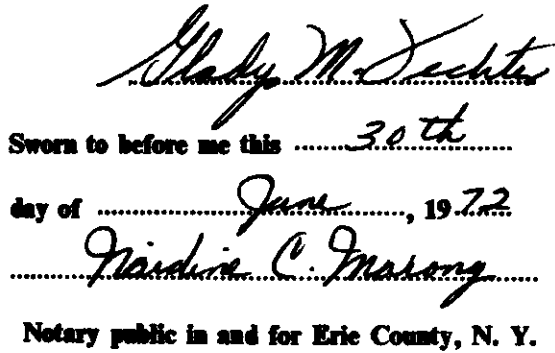 Gladys M. Fechter
Sworn to before me this 30th
day of June, 1972
Nardine C. Marong
Notary public in and for Erie County, N. Y.